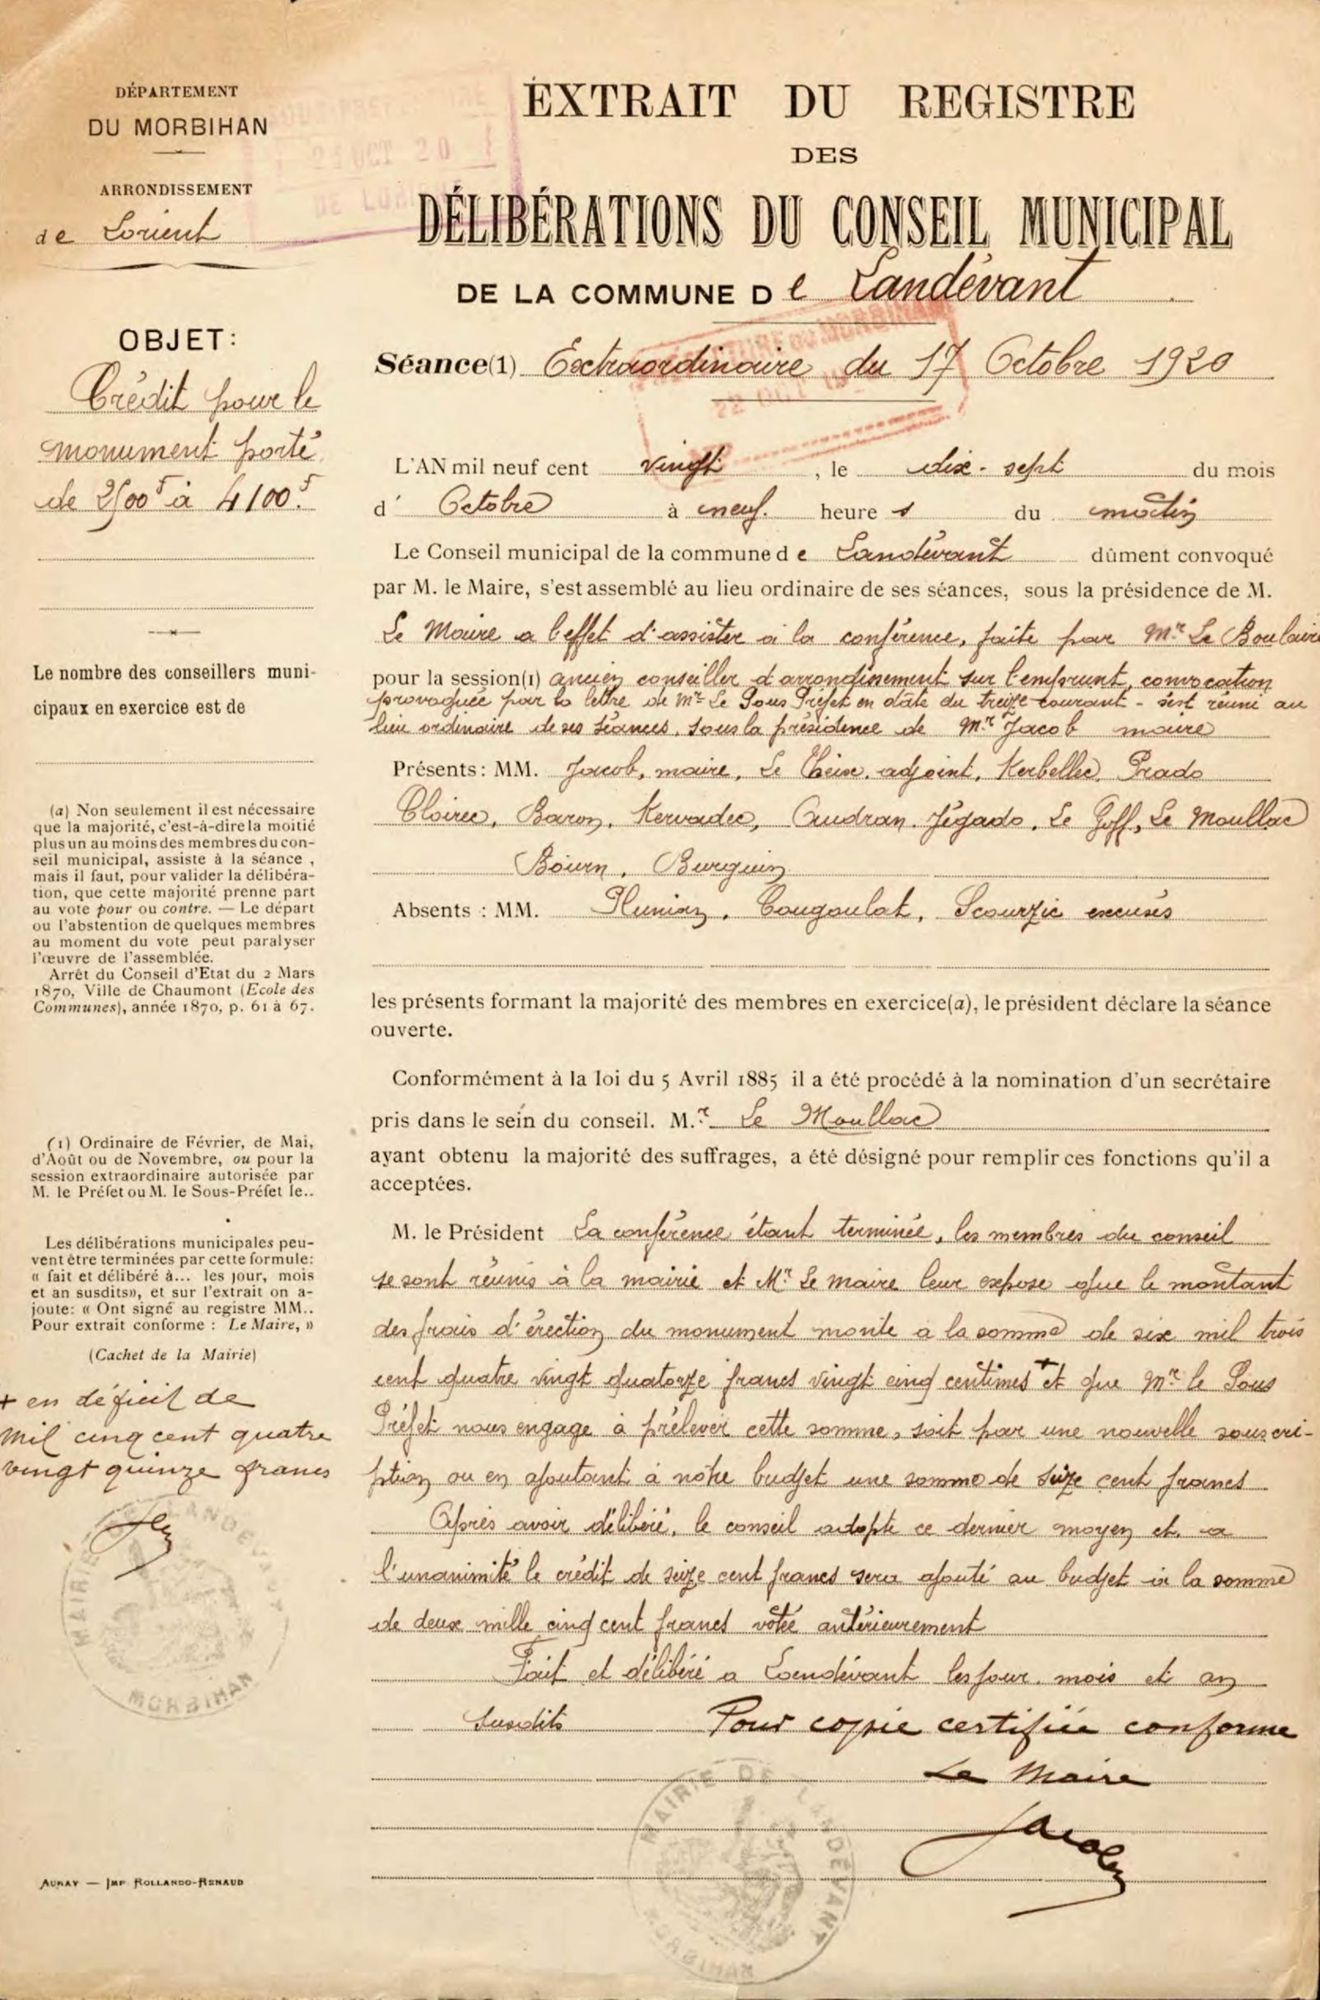 DÉPARTEMENT
DU MORBIHAN
ARRONDISSEMENT
de Lorient
EXTRAIT DU REGISTRE
DES
DÉLIBÉRATIONS DU CONSEIL MUNICIPAL
DE LA COMMUNE De Landévant
OBJET:
Crédit pour le
monument porté
de 2500f à 4100f.
Séance(1) Extraordinaire du 17 Octobre 1920
L'AN mil neuf cent vingt, le dix-sept du mois
d' Octobre à neuf heures du matin
Le Conseil municipal de la commune de Landévant dûment convoqué
par M. le Maire, s'est assemblé au lieu ordinaire de ses séances, sous la présidence de M.
Le Maire a l'effet d'assister à la conférence, faite par Mr Le Boulaire
pour la session(1) ancien conseiller d'arrondissement sur l'emprunt, convocation
provoquée par la lettre de Mr Le Sous Préfet en date du treize courant - s'est réuni au
lieu ordinaire de ses séances, sous la présidence de Mr Jacob maire
Présents: MM. Jacob, maire, Le Cheix, adjoint, Kerbellec, Prado
Cloirec, Baron, Kervadec, Audran, Jégado, Le Goff, Le Moullac
Bourn, Burguin
Absents : MM. Plunian, Cougoulat, Scourzic excusés
les présents formant la majorité des membres en exercice(a), le président déclare la séance
ouverte.
Conformément à la loi du 5 Avril 1885 il a été procédé à la nomination d'un secrétaire
pris dans le sein du conseil. M.r Le Moullac
ayant obtenu la majorité des suffrages, a été désigné pour remplir ces fonctions qu'il a
acceptées.
M. le Président La conférence étant terminée, les membres du conseil
se sont réunis à la mairie et Mr Le maire leur expose que le montant
des frais d'érection du monument monte à la somme de six mil trois
cent quatre vingt quatorze francs vingt cinq centimes + et que Mr le Sous
Préfet nous engage à prélever cette somme, soit par une nouvelle souscri-
ption ou en ajoutant à notre budget une somme de seize cent francs
Après avoir délibéré, le conseil adopte ce dernier moyen et a
l'unanimité le crédit de seize cent francs sera ajouté au budget à la somme
de deux mille cinq cent francs votée antérieurement
Fait et délibéré a Landévant les jour, mois et an
susdits Pour copie certifiée conforme
Le Maire
Jacob
Le nombre des conseillers muni-
cipaux en exercice est de
(a) Non seulement il est nécessaire
que la majorité, c'est-à-dire la moitié
plus un au moins des membres du con-
seil municipal, assiste à la séance ,
mais il faut, pour valider la délibéra-
tion, que cette majorité prenne part
au vote pour ou contre. — Le départ
ou l'abstention de quelques membres
au moment du vote peut paralyser
l'œuvre de l'assemblée.
Arrêt du Conseil d'Etat du 2 Mars
1870, Ville de Chaumont (Ecole des
Communes), année 1870, p. 61 à 67.
(1) Ordinaire de Février, de Mai,
d'Août ou de Novembre, ou pour la
session extraordinaire autorisée par
M. le Préfet ou M. le Sous-Préfet le..
Les délibérations municipales peu-
vent être terminées par cette formule:
« fait et délibéré à... les jour, mois
et an susdits», et sur l'extrait on a-
joute: « Ont signé au registre MM..
Pour extrait conforme : Le Maire, »
(Cachet de la Mairie)
+ en déficit de
mil cinq cent quatre
vingt quinze francs
MAIRIE DE LANDÉVANT
MORBIHAN
MAIRIE DE LANDÉVANT
MORBIHAN
AURAY — IMP ROLLANDO-RENAUD